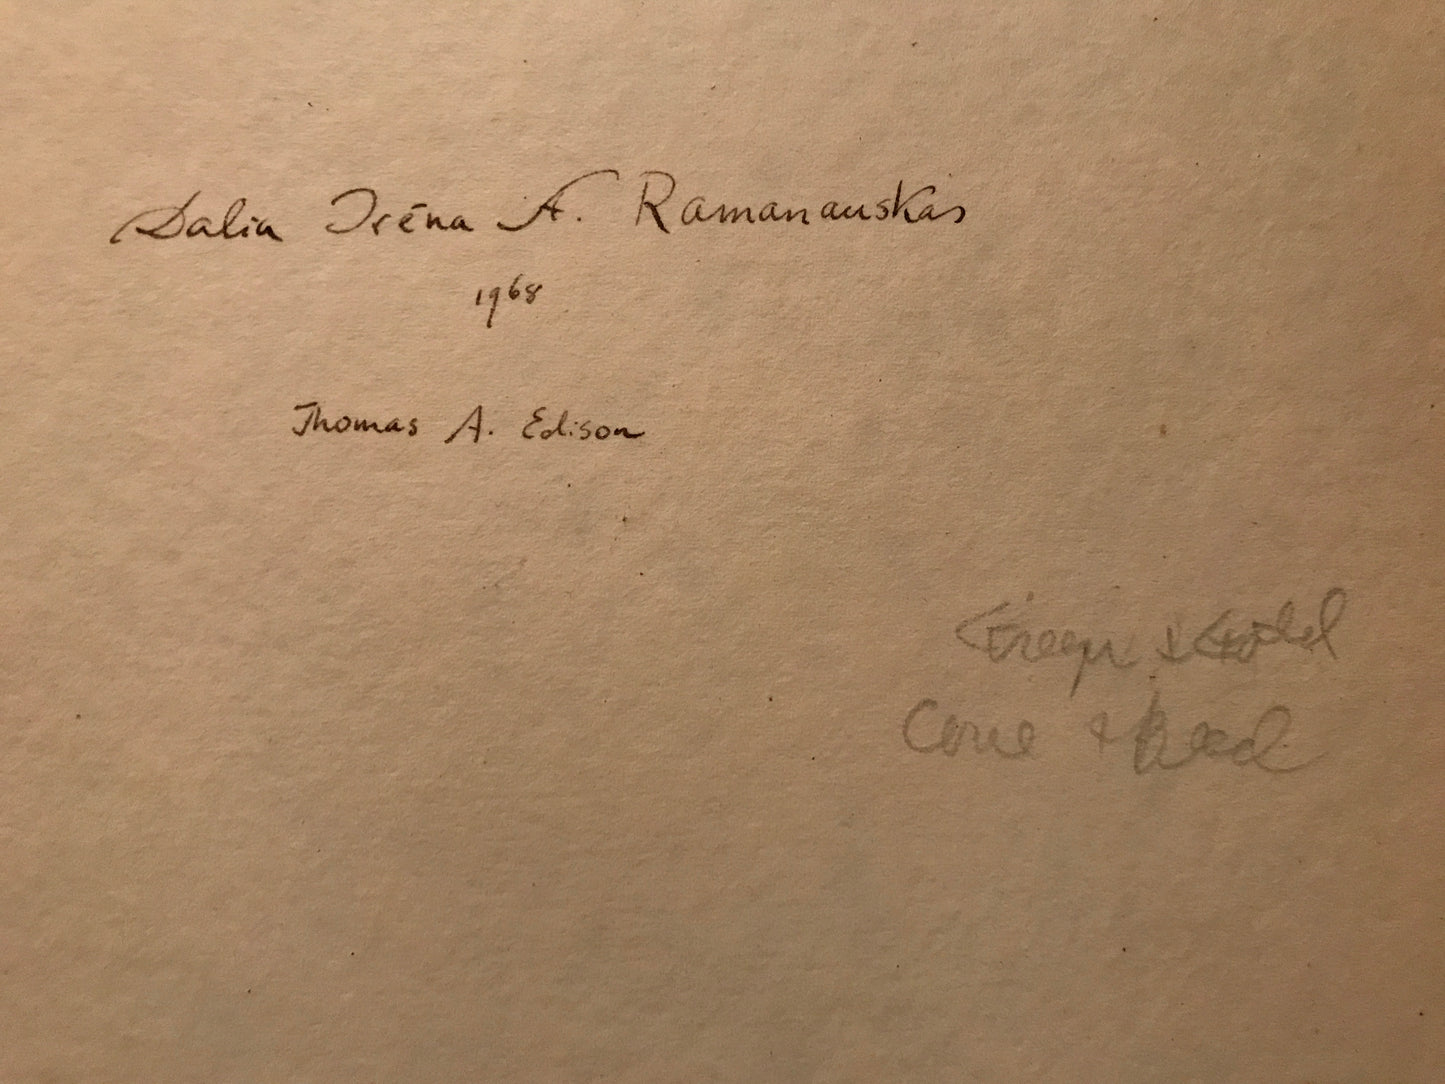 Dalia Iréna A. Ramanauskas
1968
Thomas A. Edison
Green & Gold
Cone & Bead